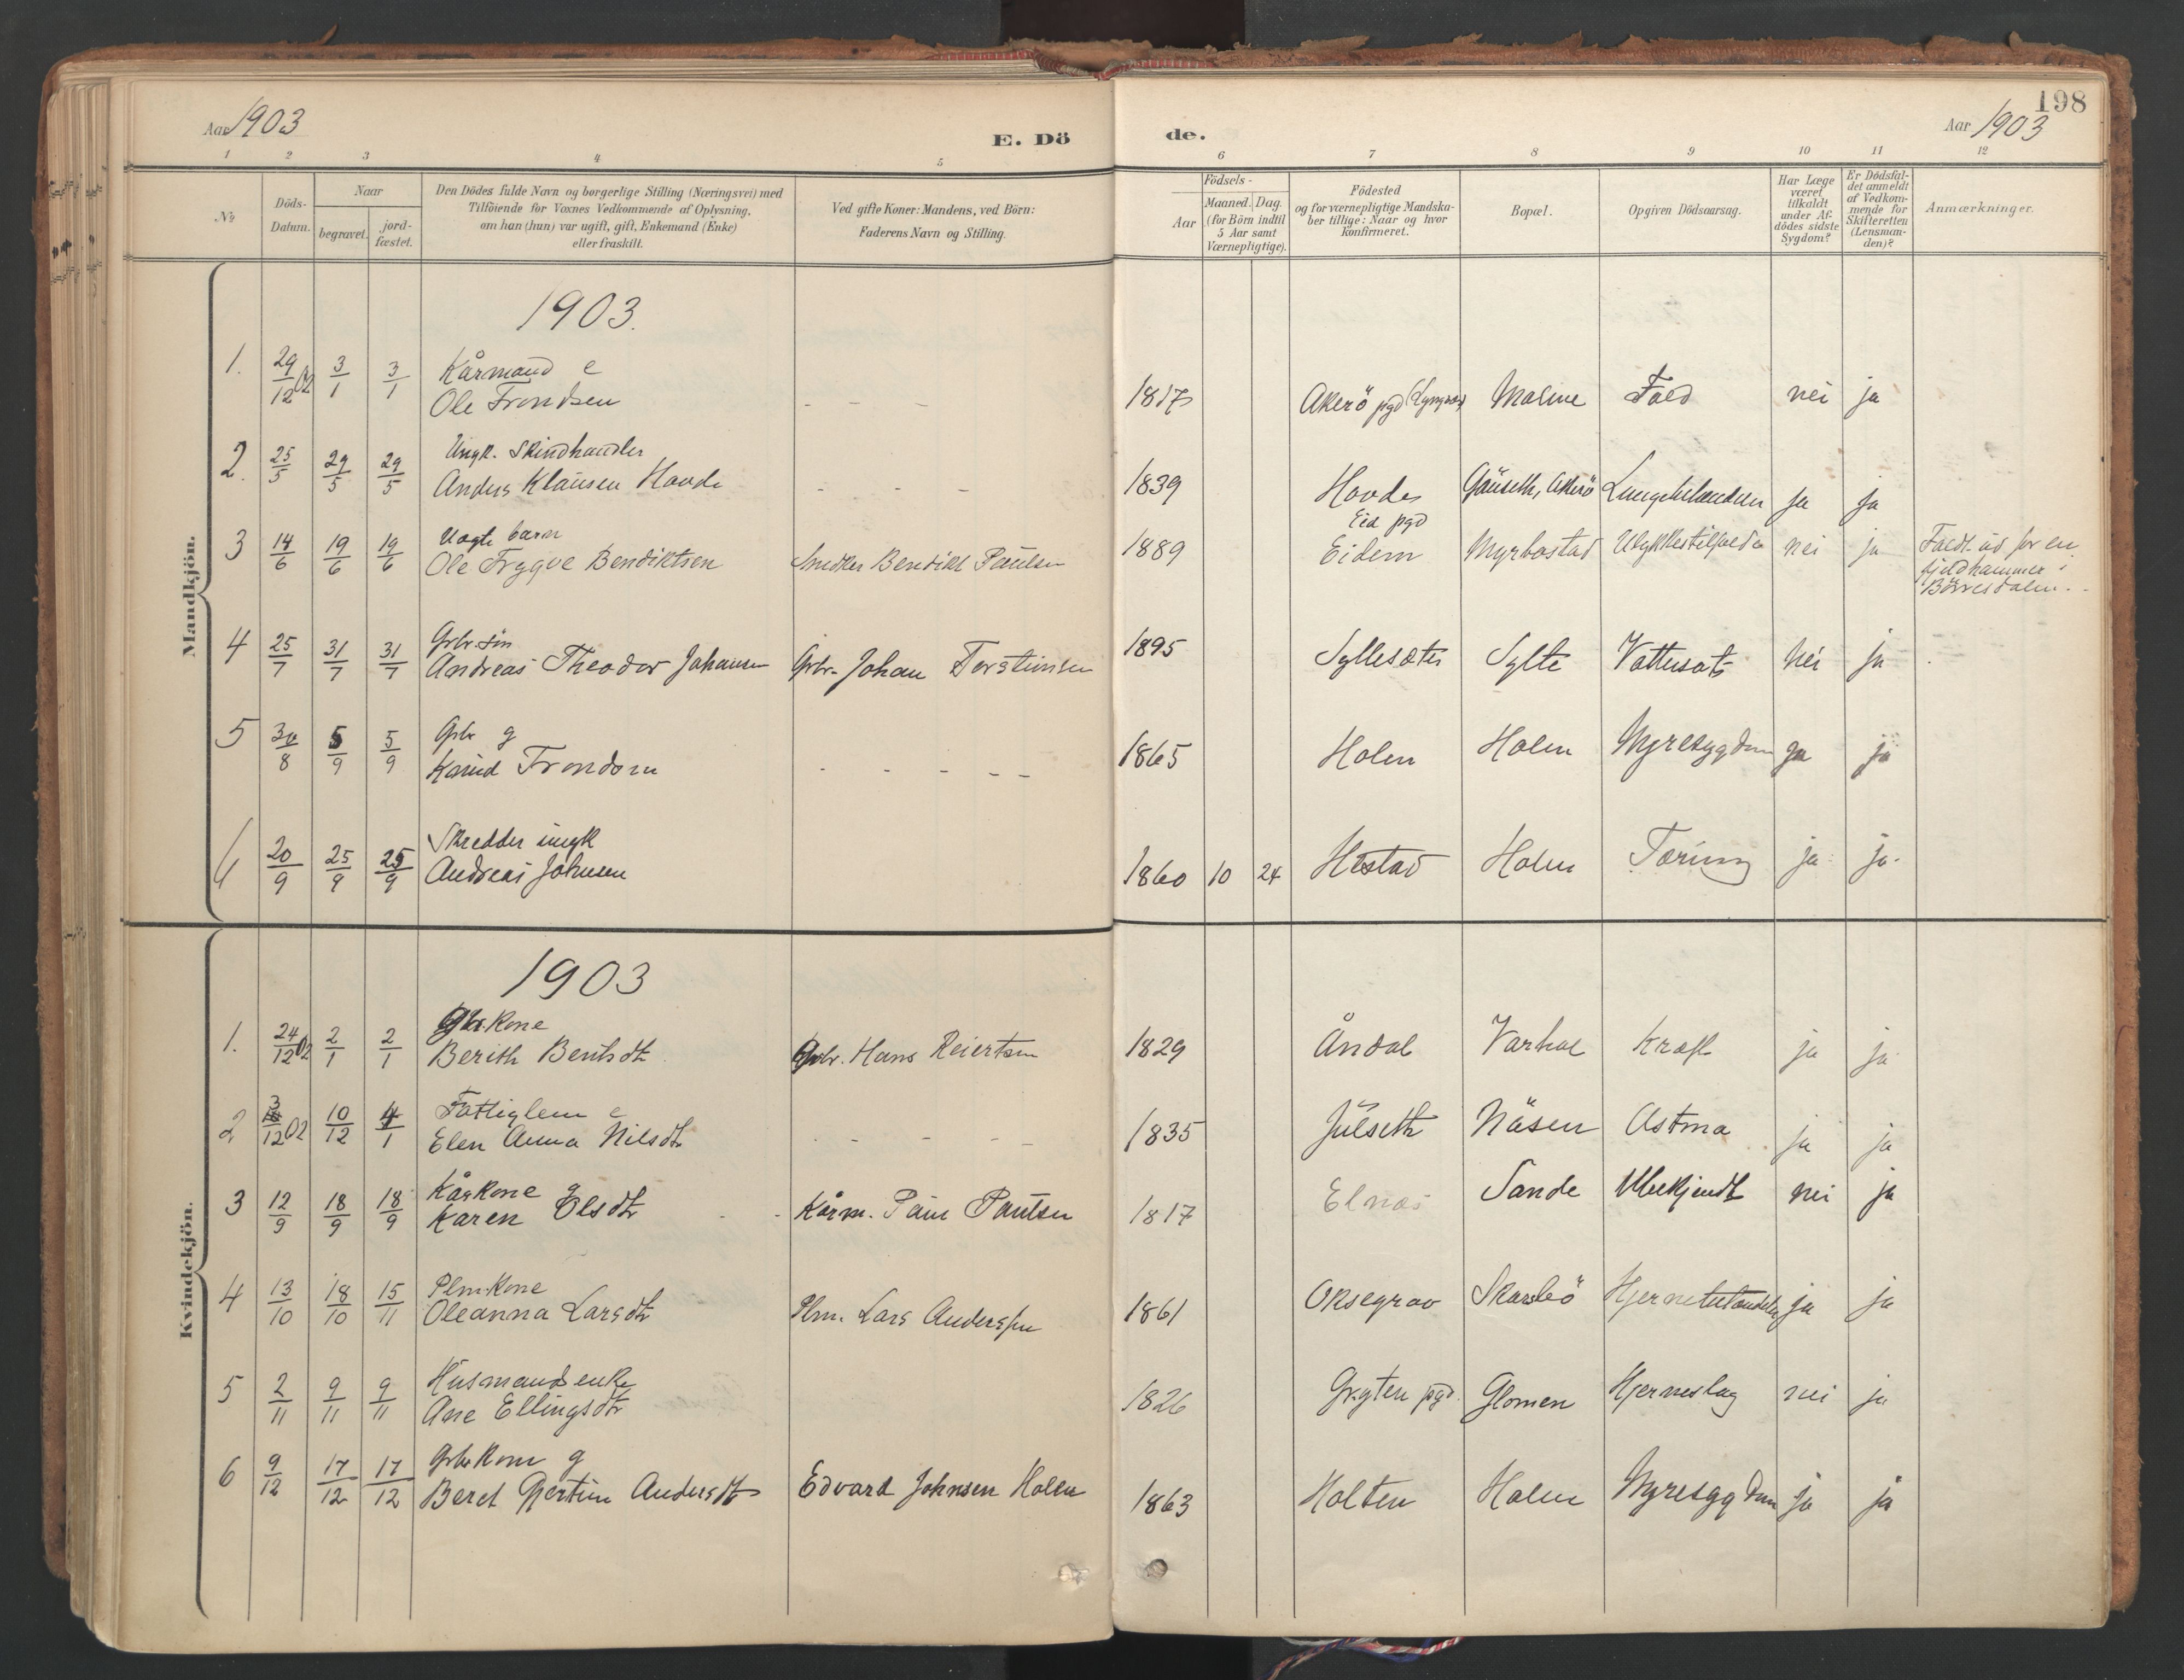 198
Aar 1903
E. Dö
de.
Aar 1903
1 2 3 4 5 6 7 8 9 10 11 12
№
Döds-
Datum.
Naar
begravet.
jord-
fæstet.
Den Dödes fulde Navn og borgerlige Stilling (Næringsvei) med
Tilföiende for Voxnes Vedkommende af Oplysning,
om han (hun) var ugift, gift, Enkemand (Enke)
eller fraskilt.
Ved gifte Koner: Mandens, ved Börn:
Faderens Navn og Stilling.
Födsels-
Aar
Maaned. Dag.
(for Börn indtil
5 Aar samt
Værnepligtige).
Födested
og for værnepligtige Mandska-
ber tillige: Naar og hvor
konfirmeret.
Bopæl.
Opgiven Dödsaarsag.
Har Læge
været
tilkaldt
under Af-
dödes sidste
Sygdom?
Er Dödsfal-
det anmeldt
af Vedkom-
mende for
Skifteretten
(Lensman-
den)?
Anmærkninger.
Mandkjön.
1903.
Kårmand e
1. 29/12 02 3/1 3/1 Ole Trondsen - - - 1817 Akerö pgd Malme nei ja
Ungk. Skindhandler
2. 25/5 29/5 29/5 Anders Klausen Hovde - - - 1839 Hovde Gåuseth, Akerö ja ja
Eid pgd
Uægte barn
3 14/6 19/6 19/6 Ole Trygve Bendiktsen Bendikt Paulsen 1889 Eidem Myrbostad nei ja Faldt ud for en
fjeldhammer i
Börresdalen.
Gbr. sön
4 25/7 31/7 31/7 Andreas Theodor Johansen Gbr. Johan Torsteinsen 1895 Syltesæter Sylte Vattersot nei ja
Gbr g
5 30/8 5/9 5/9 Knud Trondsen - - - - - 1865 Holen Holm Nyresygdom ja ja
Skredder ungk
6 20/9 25/9 25/9 Andreas Johnsen 1860 10 24 Hestad Holm Tæring ja ja
Kvindekjön.
1903
Gbr. kone
1. 24/12 02 2/1 2/1 Berith Bentsdtr Gbr. Hans Reiertsen 1829 Åndal Varhol Kræft ja ja
Fattiglem e
2 3/12 02 10/12 4/1 Elen Anna Nilsdtr - - - - 1835 Julseth Näsen Astma ja ja
Kårkone g
3 12/9 18/9 18/9 Karen Olsdtr Kårm. Paul Paulsen 1817 Elnæs Sande Ubekjendt nei ja
Plm. kone
4 13/10 18/10 15/11 Oleanna Larsdtr Plm. Lars Anderssen 1861 Oksegrov Skarslö ja ja
Husmandsenke
5 2/11 9/11 9/11 Ane Ellingsdtr 1826 Gryten pgd. Glomen Hjerneslag nei ja
Gbr kone g
6 9/12 17/12 17/12 Beret Gjertine Andersdtr Edvard Johnsen Holm 1863 Holten Holm Nyresygdom ja ja